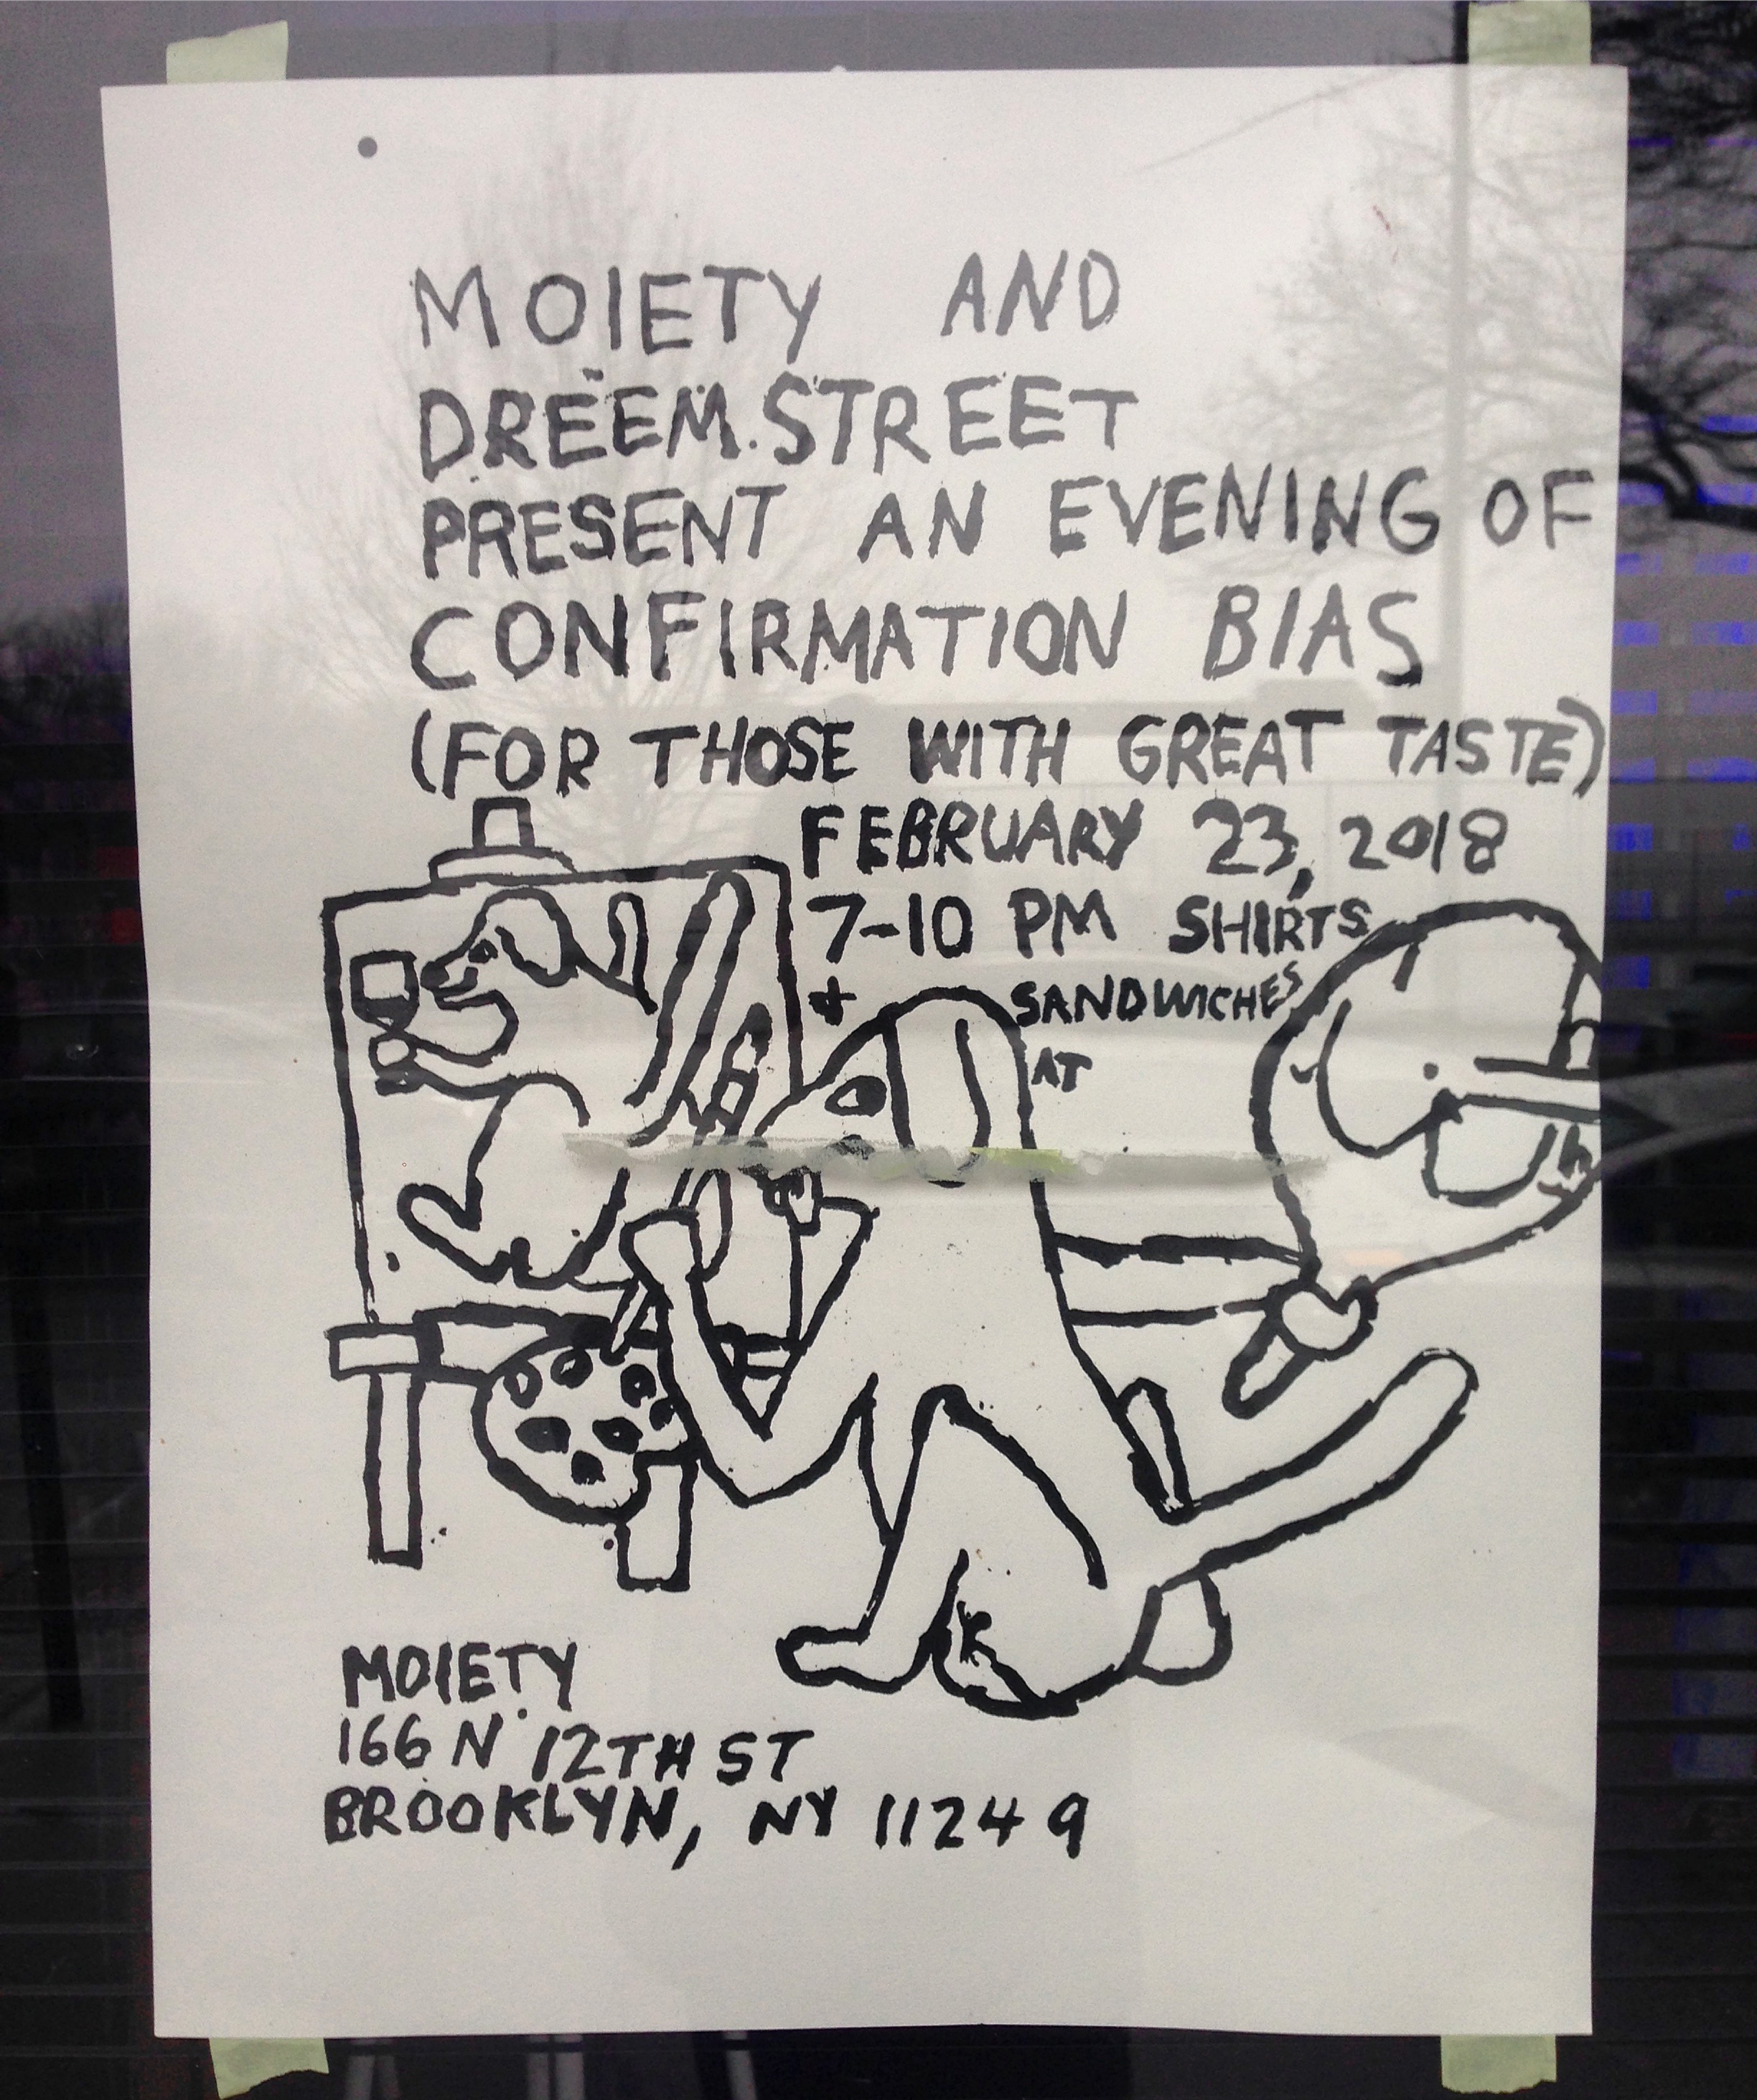 MOIETY AND
DREEM.STREET
PRESENT AN EVENING OF
CONFIRMATION BIAS
(FOR THOSE WITH GREAT TASTE)
FEBRUARY 23, 2018
7-10 PM SHIRTS
+ SANDWICHES
AT
MOIETY
166 N 12TH ST
BROOKLYN, NY 11249